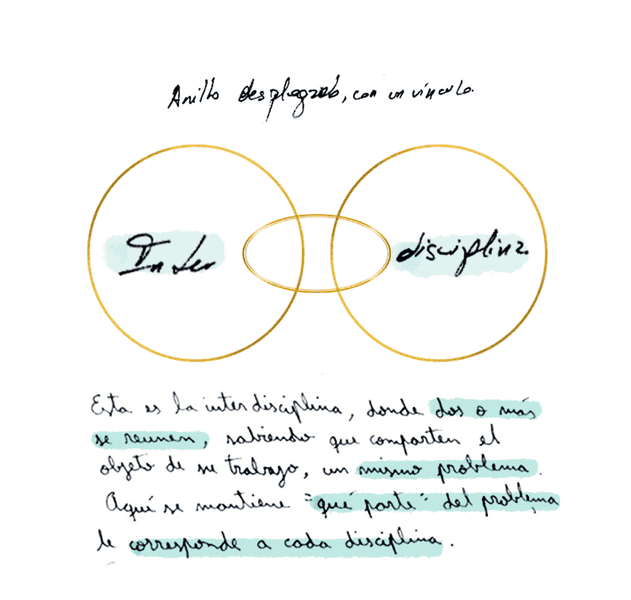 Anillo desplegado, con un vínculo.
Inter
disciplina
Esta es la interdisciplina, donde dos o más
se reunen, sabiendo que comparten el
objeto de su trabajo, un mismo problema.
Aquí se mantiene "qué parte" del problema
le corresponde a cada disciplina.